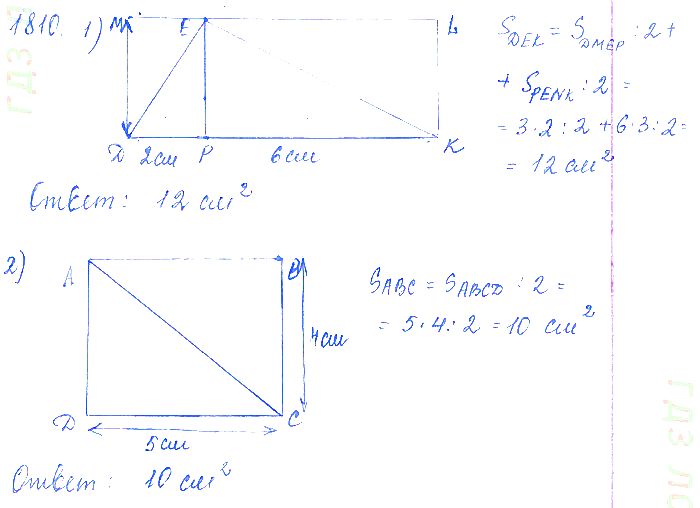 1810. 1)
M E L
D 2см P 6см K
S DEK = S DMEP : 2 +
+ S PENK : 2 =
= 3·2 : 2 + 6·3 : 2 =
= 12 см²
Ответ: 12 см²
2)
A B
4см
D C
5см
S ABC = S ABCD : 2 =
= 5·4 : 2 = 10 см²
Ответ: 10 см²
ГДЗ
ГДЗ ЛС